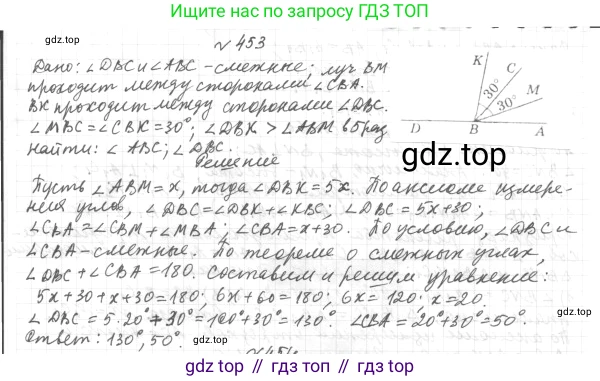 Ищите нас по запросу ГДЗ ТОП
№ 453
Дано: ∠DBC и ∠ABC - смежные; луч BM
проходит между сторонами ∠CBA.
BK проходит между сторонами ∠DBC.
∠MBC = ∠CBK = 30°; ∠DBK > ∠ABM в 5 раз
найти: ∠ABC; ∠DBC.
Решение
K C M 30° 30° D B A
gdz.top
Пусть ∠ABM = x, тогда ∠DBK = 5x. По аксиоме измере-
ния углов, ∠DBC = ∠DBK + ∠KBC; ∠DBC = 5x + 30;
∠CBA = ∠CBM + ∠MBA; ∠CBA = x + 30. По условию, ∠DBC и
∠CBA - смежные. По теореме о смежных углах,
∠DBC + ∠CBA = 180. Составим и решим уравнение:
5x + 30 + x + 30 = 180; 6x + 60 = 180; 6x = 120; x = 20.
∠DBC = 5·20° + 30° = 100° + 30° = 130°. ∠CBA = 20° + 30° = 50°.
Ответ: 130°, 50°.
gdz.top